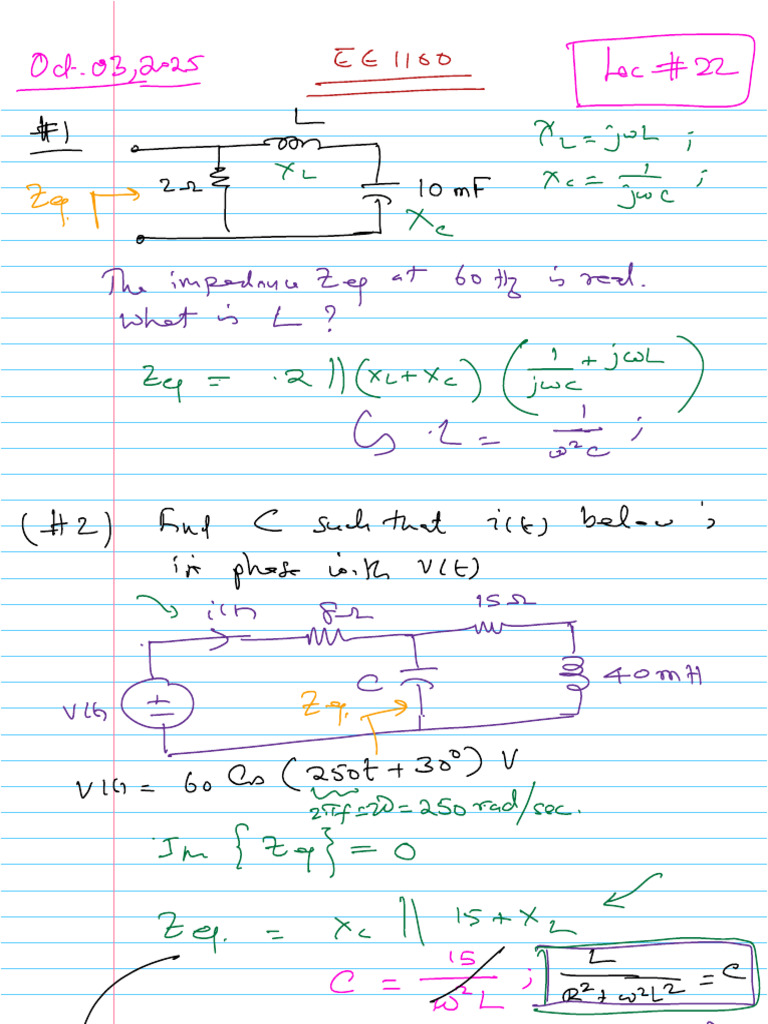 Oct. 03, 2025
EE 1160
Lec # 22
#1
L
X_L = jωL ;
2Ω
X_L
10 mF
X_C = 1/(jωC) ;
Zeq.
X_C
The impedance Zeq at 60 Hz is real.
What is L ?
Zeq = 2 || (X_L + X_C) (1/(jωC) + jωL)
L = 1/(ω²C) ;
(#2) Find C such that i(t) below is
in phase with v(t)
i(t)
8Ω
15Ω
C
40mH
V(t)
+
−
Zeq.
V(t) = 60 Cos (250t + 30°) V
2πf = ω = 250 rad/sec.
Im {Zeq} = 0
Zeq. = X_C || 15 + X_L
C = 15/(ω²L) ; L/(R² + ω²L²) = C